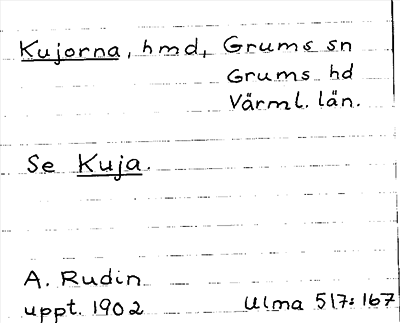 Kujorna, hmd, Grums sn
Grums hd
Värml. län.
Se Kuja.
A. Rudin
uppt. 1902 Ulma 517:167